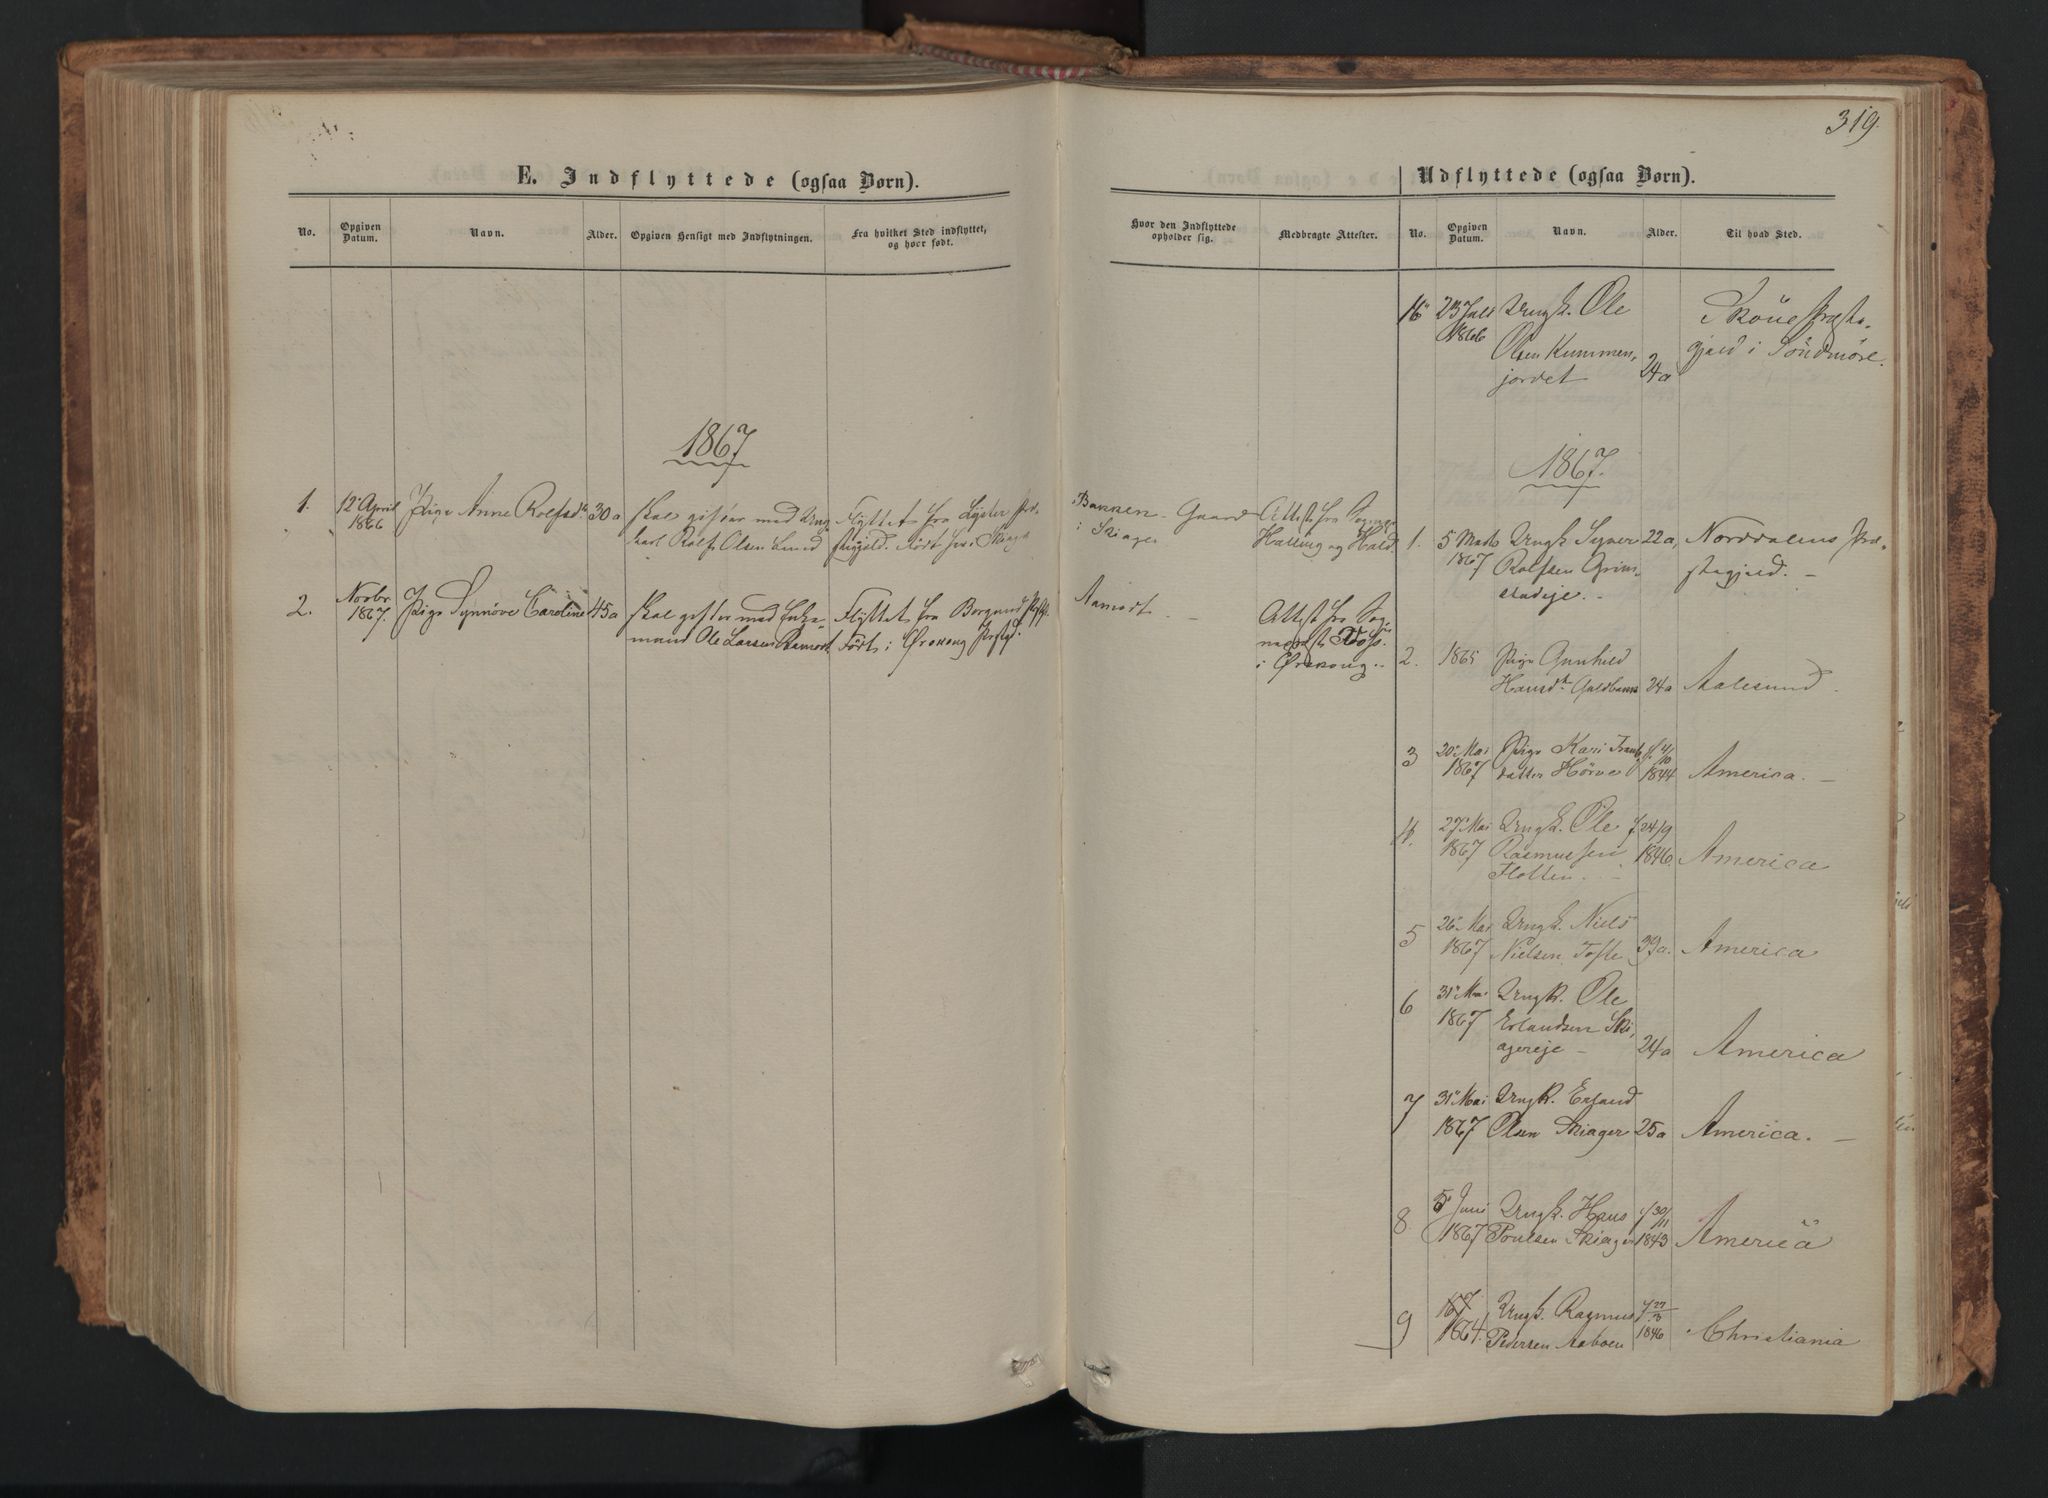 319.
E. Indflyttede (ogsaa Børn).
No.
Opgiven Datum.
Navn.
Alder.
Opgiven Hensigt med Indflytningen.
Fra hvilket Sted indflyttet, og hvor født.
Hvor den Indflyttede opholder sig.
Medbragte Attester.
1867
1.
12te April
1866
Pige Anne Rolfsdtr
30 a
skal gifter med Ung
karl Rolf Olsen Lund
Flyttet fra Lyster Præ
stgjeld. Født her i Skiager
Bakken - Gaard
i Skiager
Attest fra Sognepr
Halling og Hald.
2.
Novbr
1867.
Pige Synnøve Caroline
45 a
skal gifter med Enke-
mand Ole Larsen Aamodt
Flyttet fra Borgund Pstgj.
Født i Ørskoug Pstgd.
Aamodt
Attest fra Sog
i Ørskoug.
Udflyttede (ogsaa Børn).
No.
Opgiven Datum.
Navn.
Alder.
Til hvad Sted.
16
23 Juli
1866
Ungk. Ole
Olsen Kummen,
jordet
24 a
Skoue Præste-
gjeld i Söndmöre.
1867.
1.
5 Marts
1867
Ungk Syver
Rolfsen Grim-
stadeje. -
22 a,
Norddalens Præ-
stegjeld. -
2.
1865
Pige Gunhild
Hansdtr Galdbann
24 a
Aalesund.
3
20 Mai
1867
Pige Kari Frants
datter Hörve
f. 4/10
1844
America. -
4.
27 Mai
1867
Ungk. Ole
Rasmussen
Flotten. -
f. 24/9
1846.
America
5
26 Mai
1867
Ungk. Niels
Nielsen Tofte
39 a.
America
6
31 Mai
1867
Ungk. Ole
Erlandsen Ski,
agereje -
24 a
America
7
31 Mai
1867
Ungk. Erland
Olsen Skiager
25 a
America. -
8.
5 Juni
1867
Ungk. Hans
Poulsen Skiager
f 30/11
1843
America
9
16/7
1864.
Ungk. Rasmus
Pedersen Aaboen
f 27/3
1846
Christiania